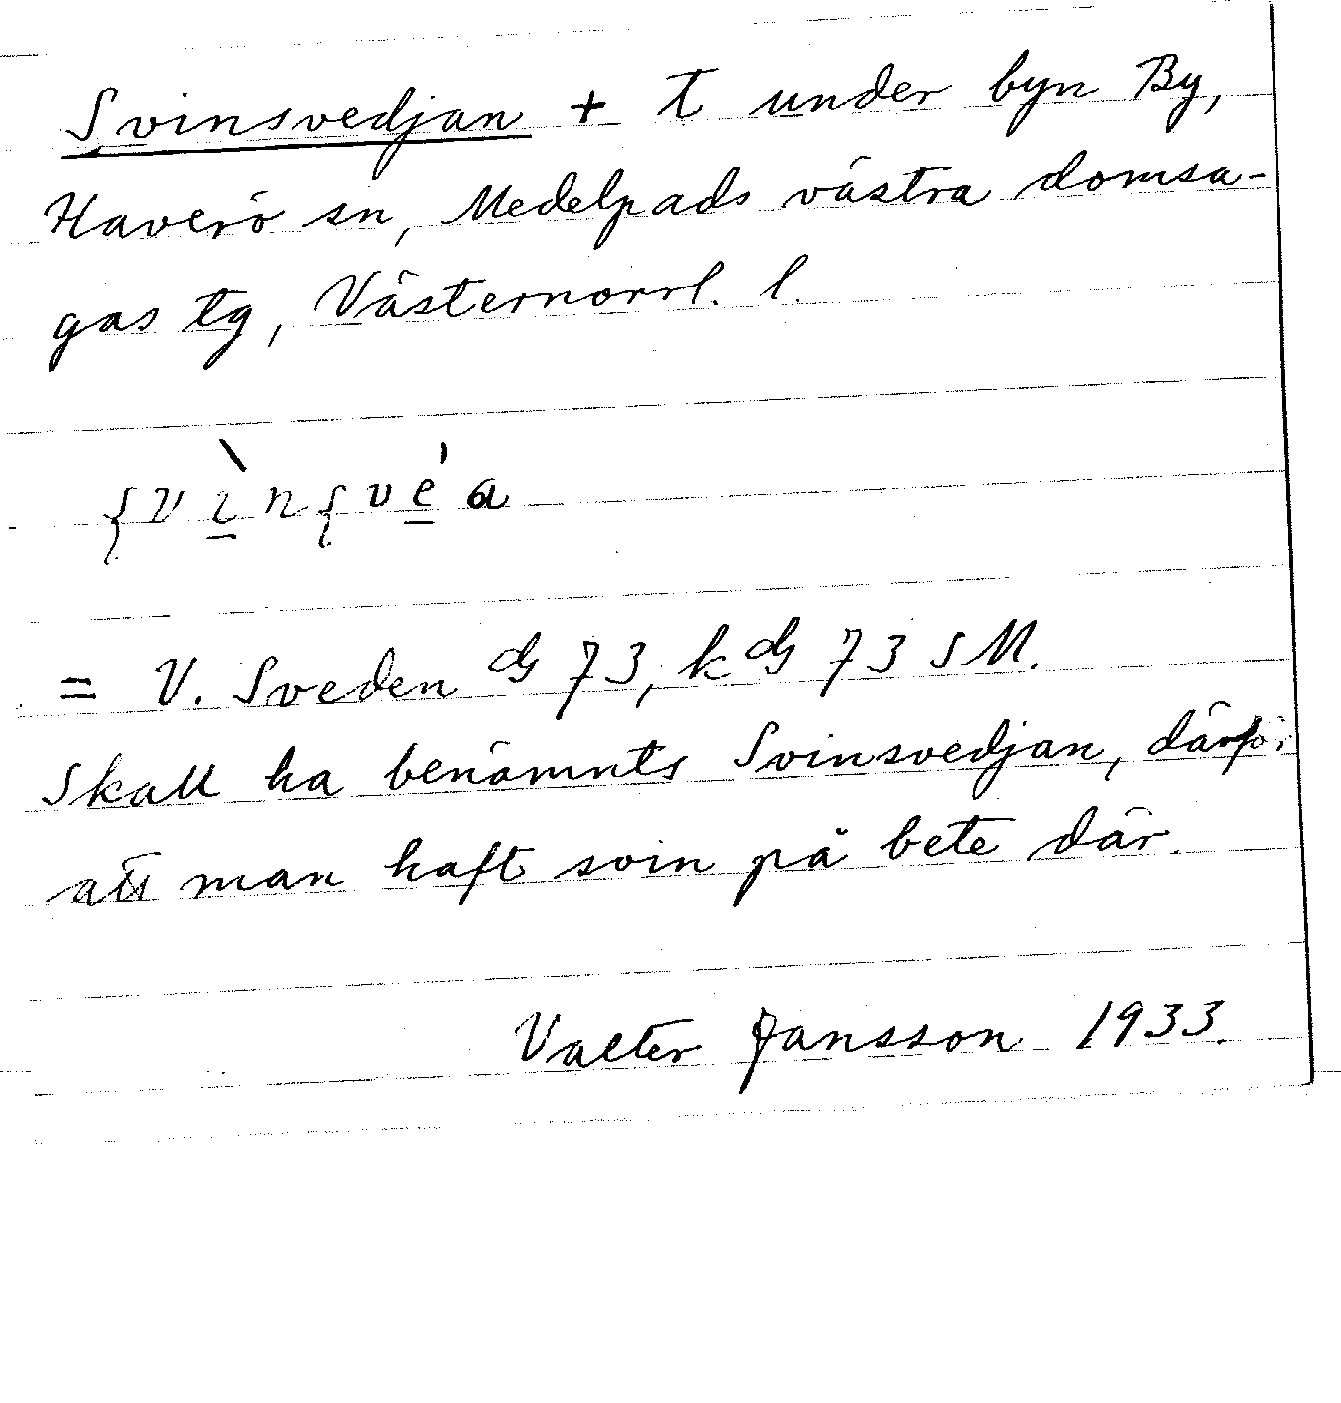 Svinsvedjan + t under byn By,
Haverö sn, Medelpads västra domsa-
gas tg, Västernorrl. l.
ʃvìnʃvéa
= V. Sveden 73, k 73 SM.
Skall ha benämnts Svinsvedjan, därför
att man haft svin på bete där.
Valter Jansson 1933.